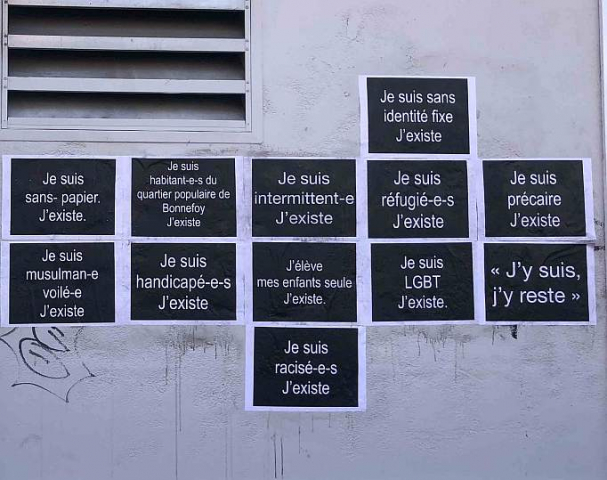 Je suis sans
identité fixe
J'existe
Je suis
sans- papier.
J'existe.
Je suis
habitant-e-s du
quartier populaire de
Bonnefoy
J'existe
Je suis
intermittent-e
J'existe
Je suis
réfugié-e-s
J'existe
Je suis
précaire
J'existe
Je suis
musulman-e
voilé-e
J'existe
Je suis
handicapé-e-s
J'existe
J'élève
mes enfants seule
J'existe.
Je suis
LGBT
J'existe.
« J'y suis,
j'y reste »
Je suis
racisé-e-s
J'existe